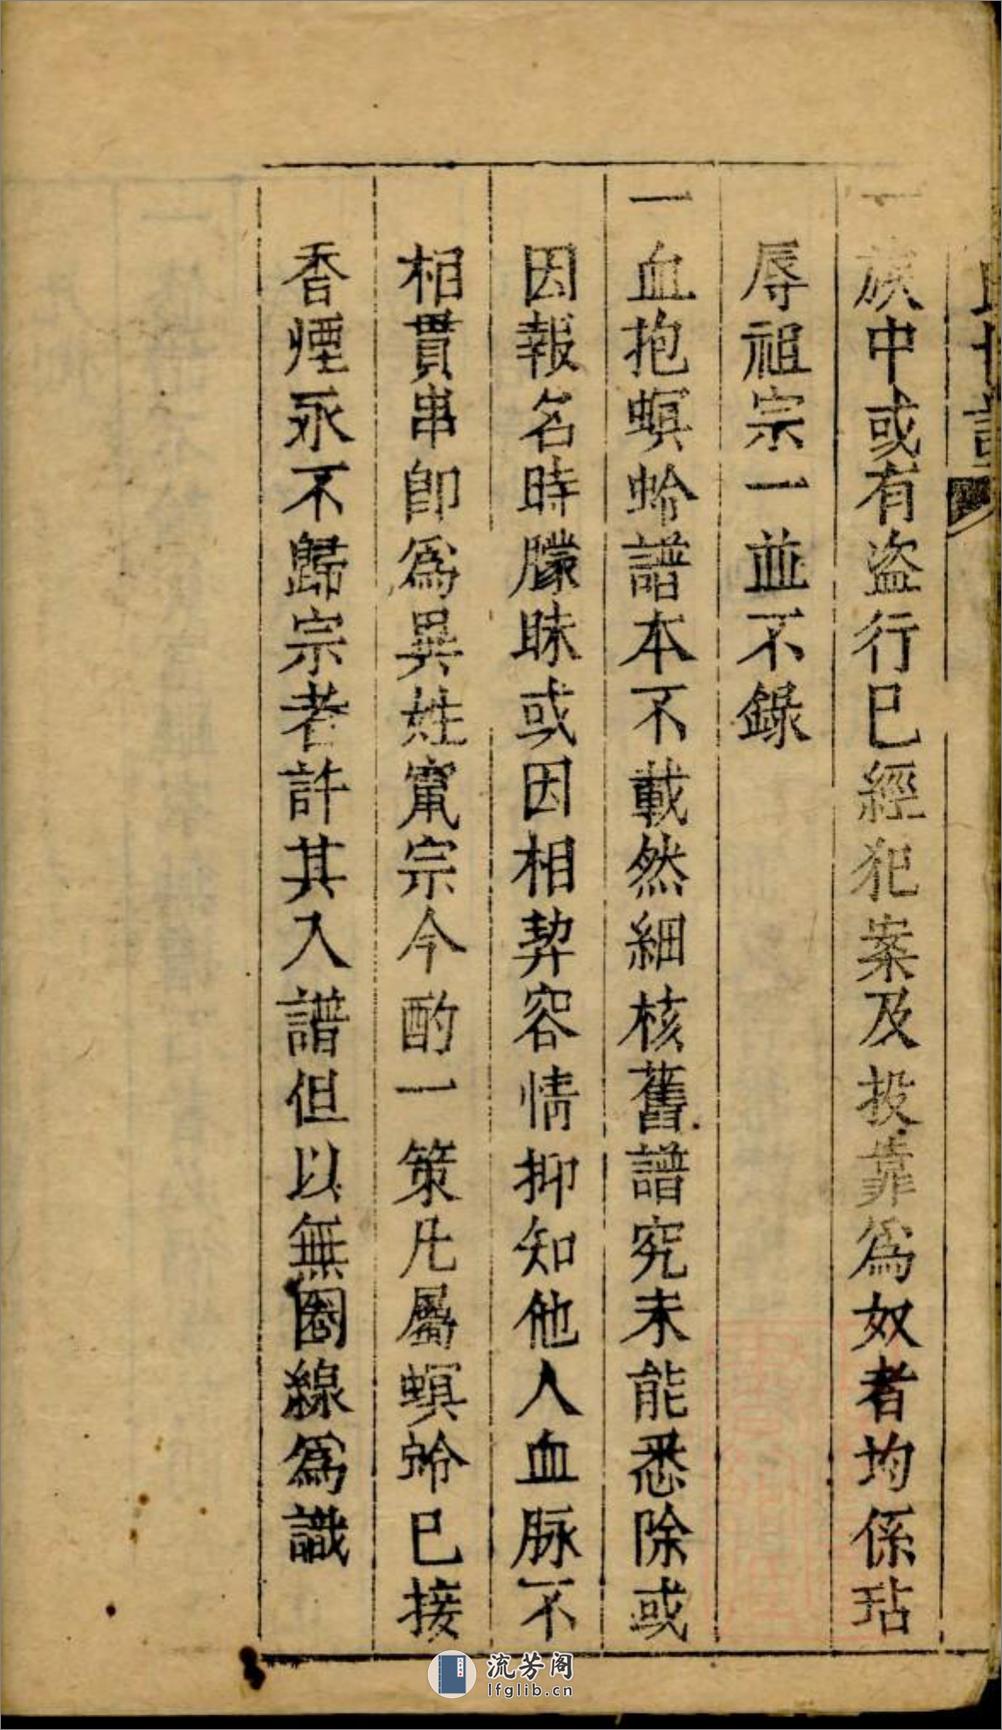 氏世譜
一族中或有盜行已經犯案及投靠爲奴者均係玷
辱祖宗一並不錄
一血抱螟蛉譜本不載然細核舊譜究未能悉除或
因報名時朦昧或因相契容情抑知他人血脉不
相貫串卽爲異姓竄宗今酌一策凡屬螟蛉已接
香煙永不歸宗者許其入譜但以無圈線爲識
流芳阁
lfglib.cn